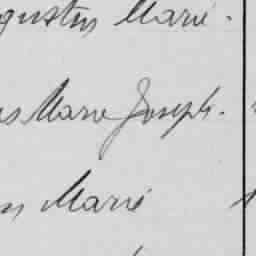 gustus Marie.
us Marie Joseph.
us Marie